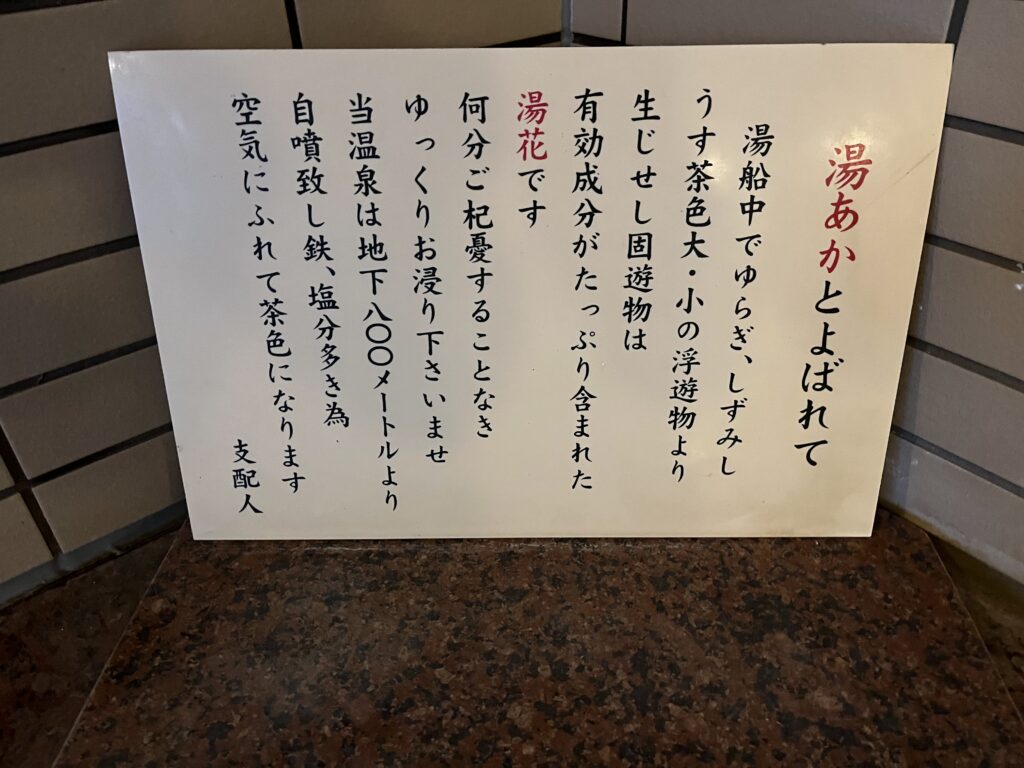 湯あかとよばれて
湯船中でゆらぎ、しずみし
うす茶色大・小の浮遊物より
生じせし固遊物は
有効成分がたっぷり含まれた
湯花です
何分ご杞憂することなき
ゆっくりお浸り下さいませ
当温泉は地下八〇〇メートルより
自噴致し鉄、塩分多き為
空気にふれて茶色になります
支配人